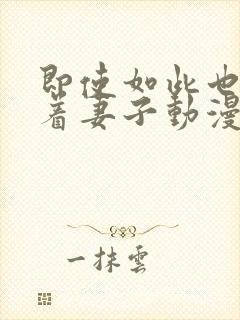 即使如此也
着妻子動漫
一抹雲